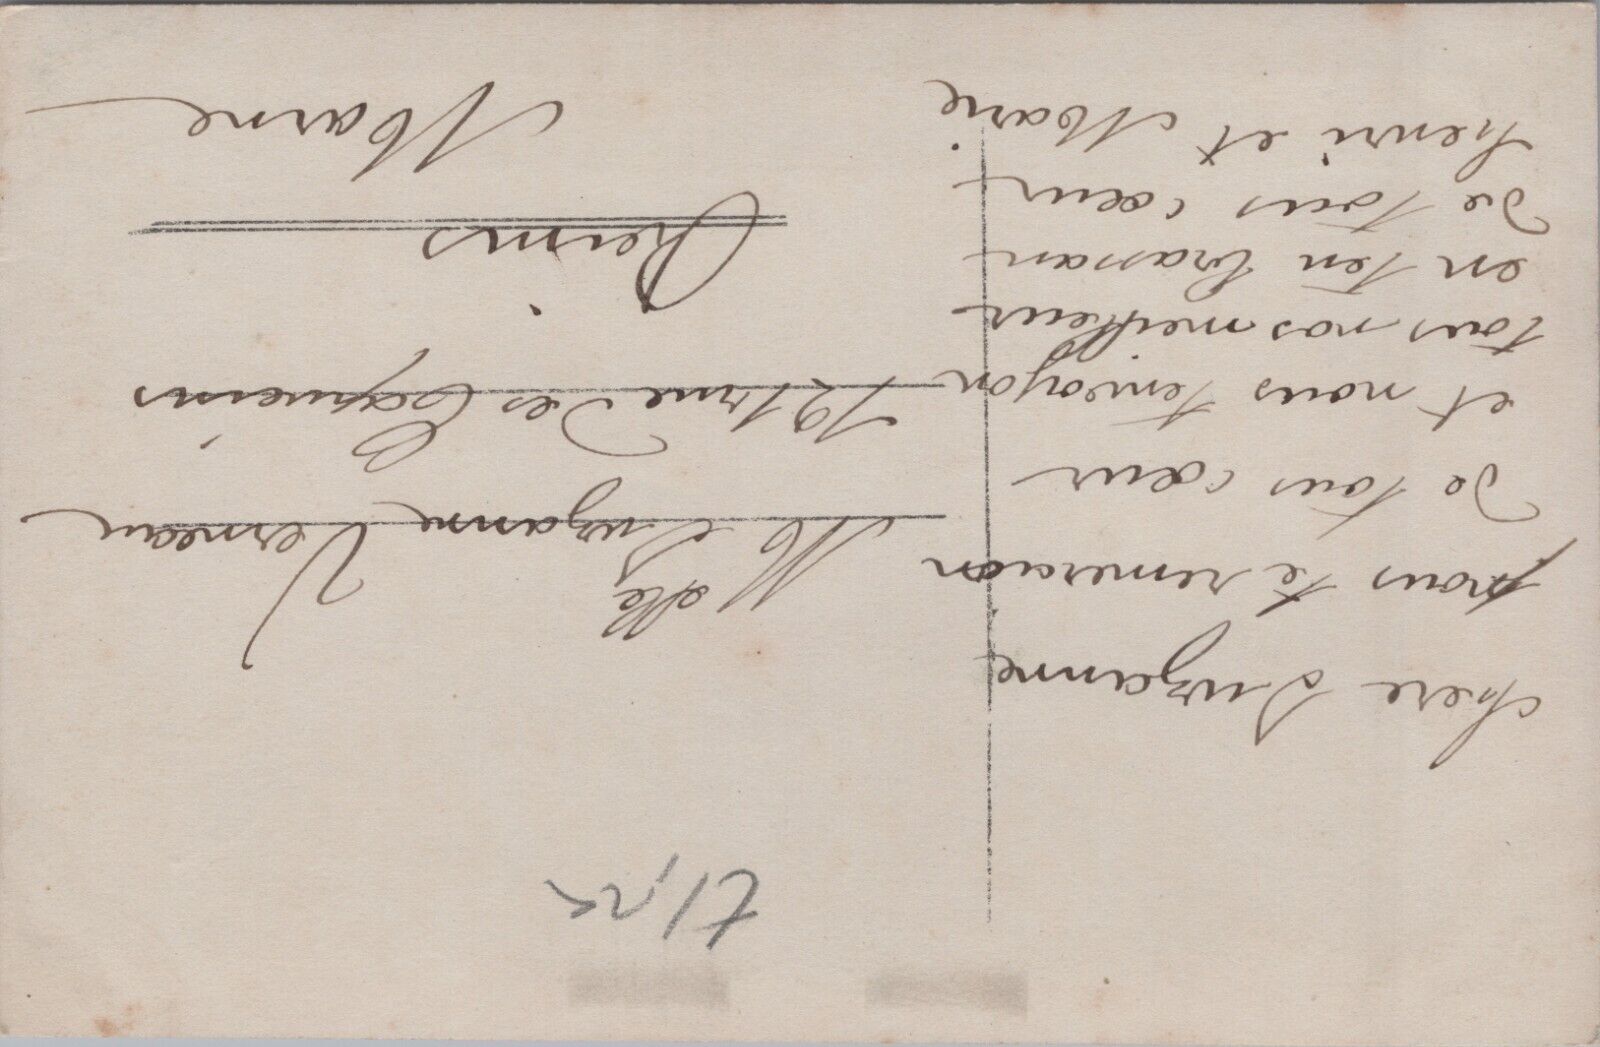 chere Suzanne
nous te remercion
De tous cœur
et nous t'envoyon
tous nos meilleur
en ten brassant
De tous cœur
henri et Marie
Melle Suzanne Verneau
121 rue Des Capucins
Reims
Marne